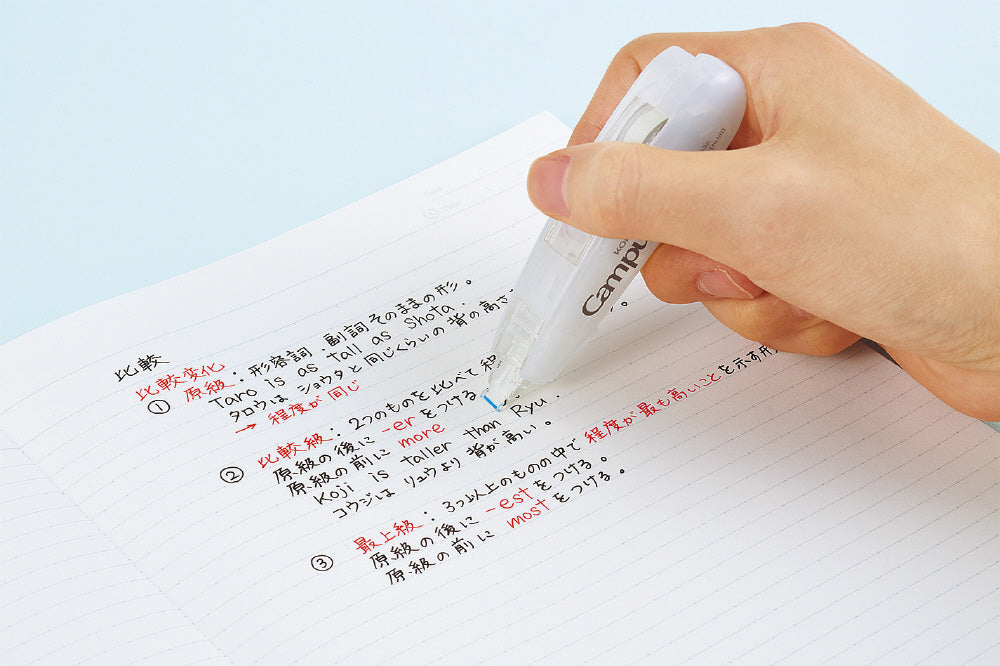 比較
比較変化
① 原級：形容詞 副詞 そのままの形。
Taro is as tall as Shota.
タロウは ショウタと 同じくらいの 背の高さ
→ 程度が 同じ
② 比較級：2つのものを比べて
原級の後に -er をつける
原級の前に more
Koji is taller than Ryu.
コウジは リュウより 背が高い。
③ 最上級：3つ以上のものの中で 程度が 最も高いことを示す形
原級の後に -est をつける。
原級の前に most をつける。
Campu